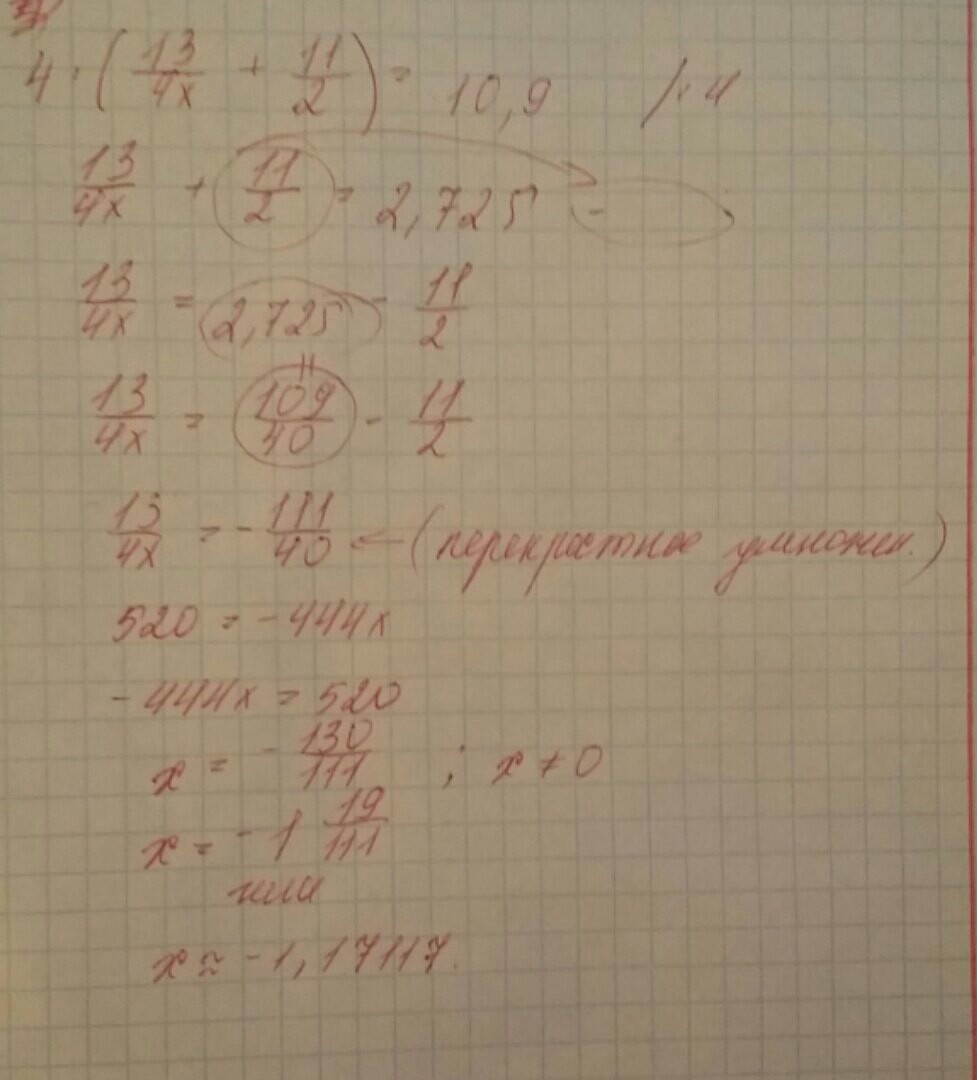 4 · ( 13/4x + 11/2 ) = 10,9 /: 4
13/4x + 11/2 = 2,725 -
13/4x = 2,725 - 11/2
13/4x = 109/40 - 11/2
13/4x = - 111/40 ← (перекрестное умножен.)
520 = -444x
-444x = 520
x = - 130/111 ; x ≠ 0
x = -1 19/111
или
x ≈ -1,17117.